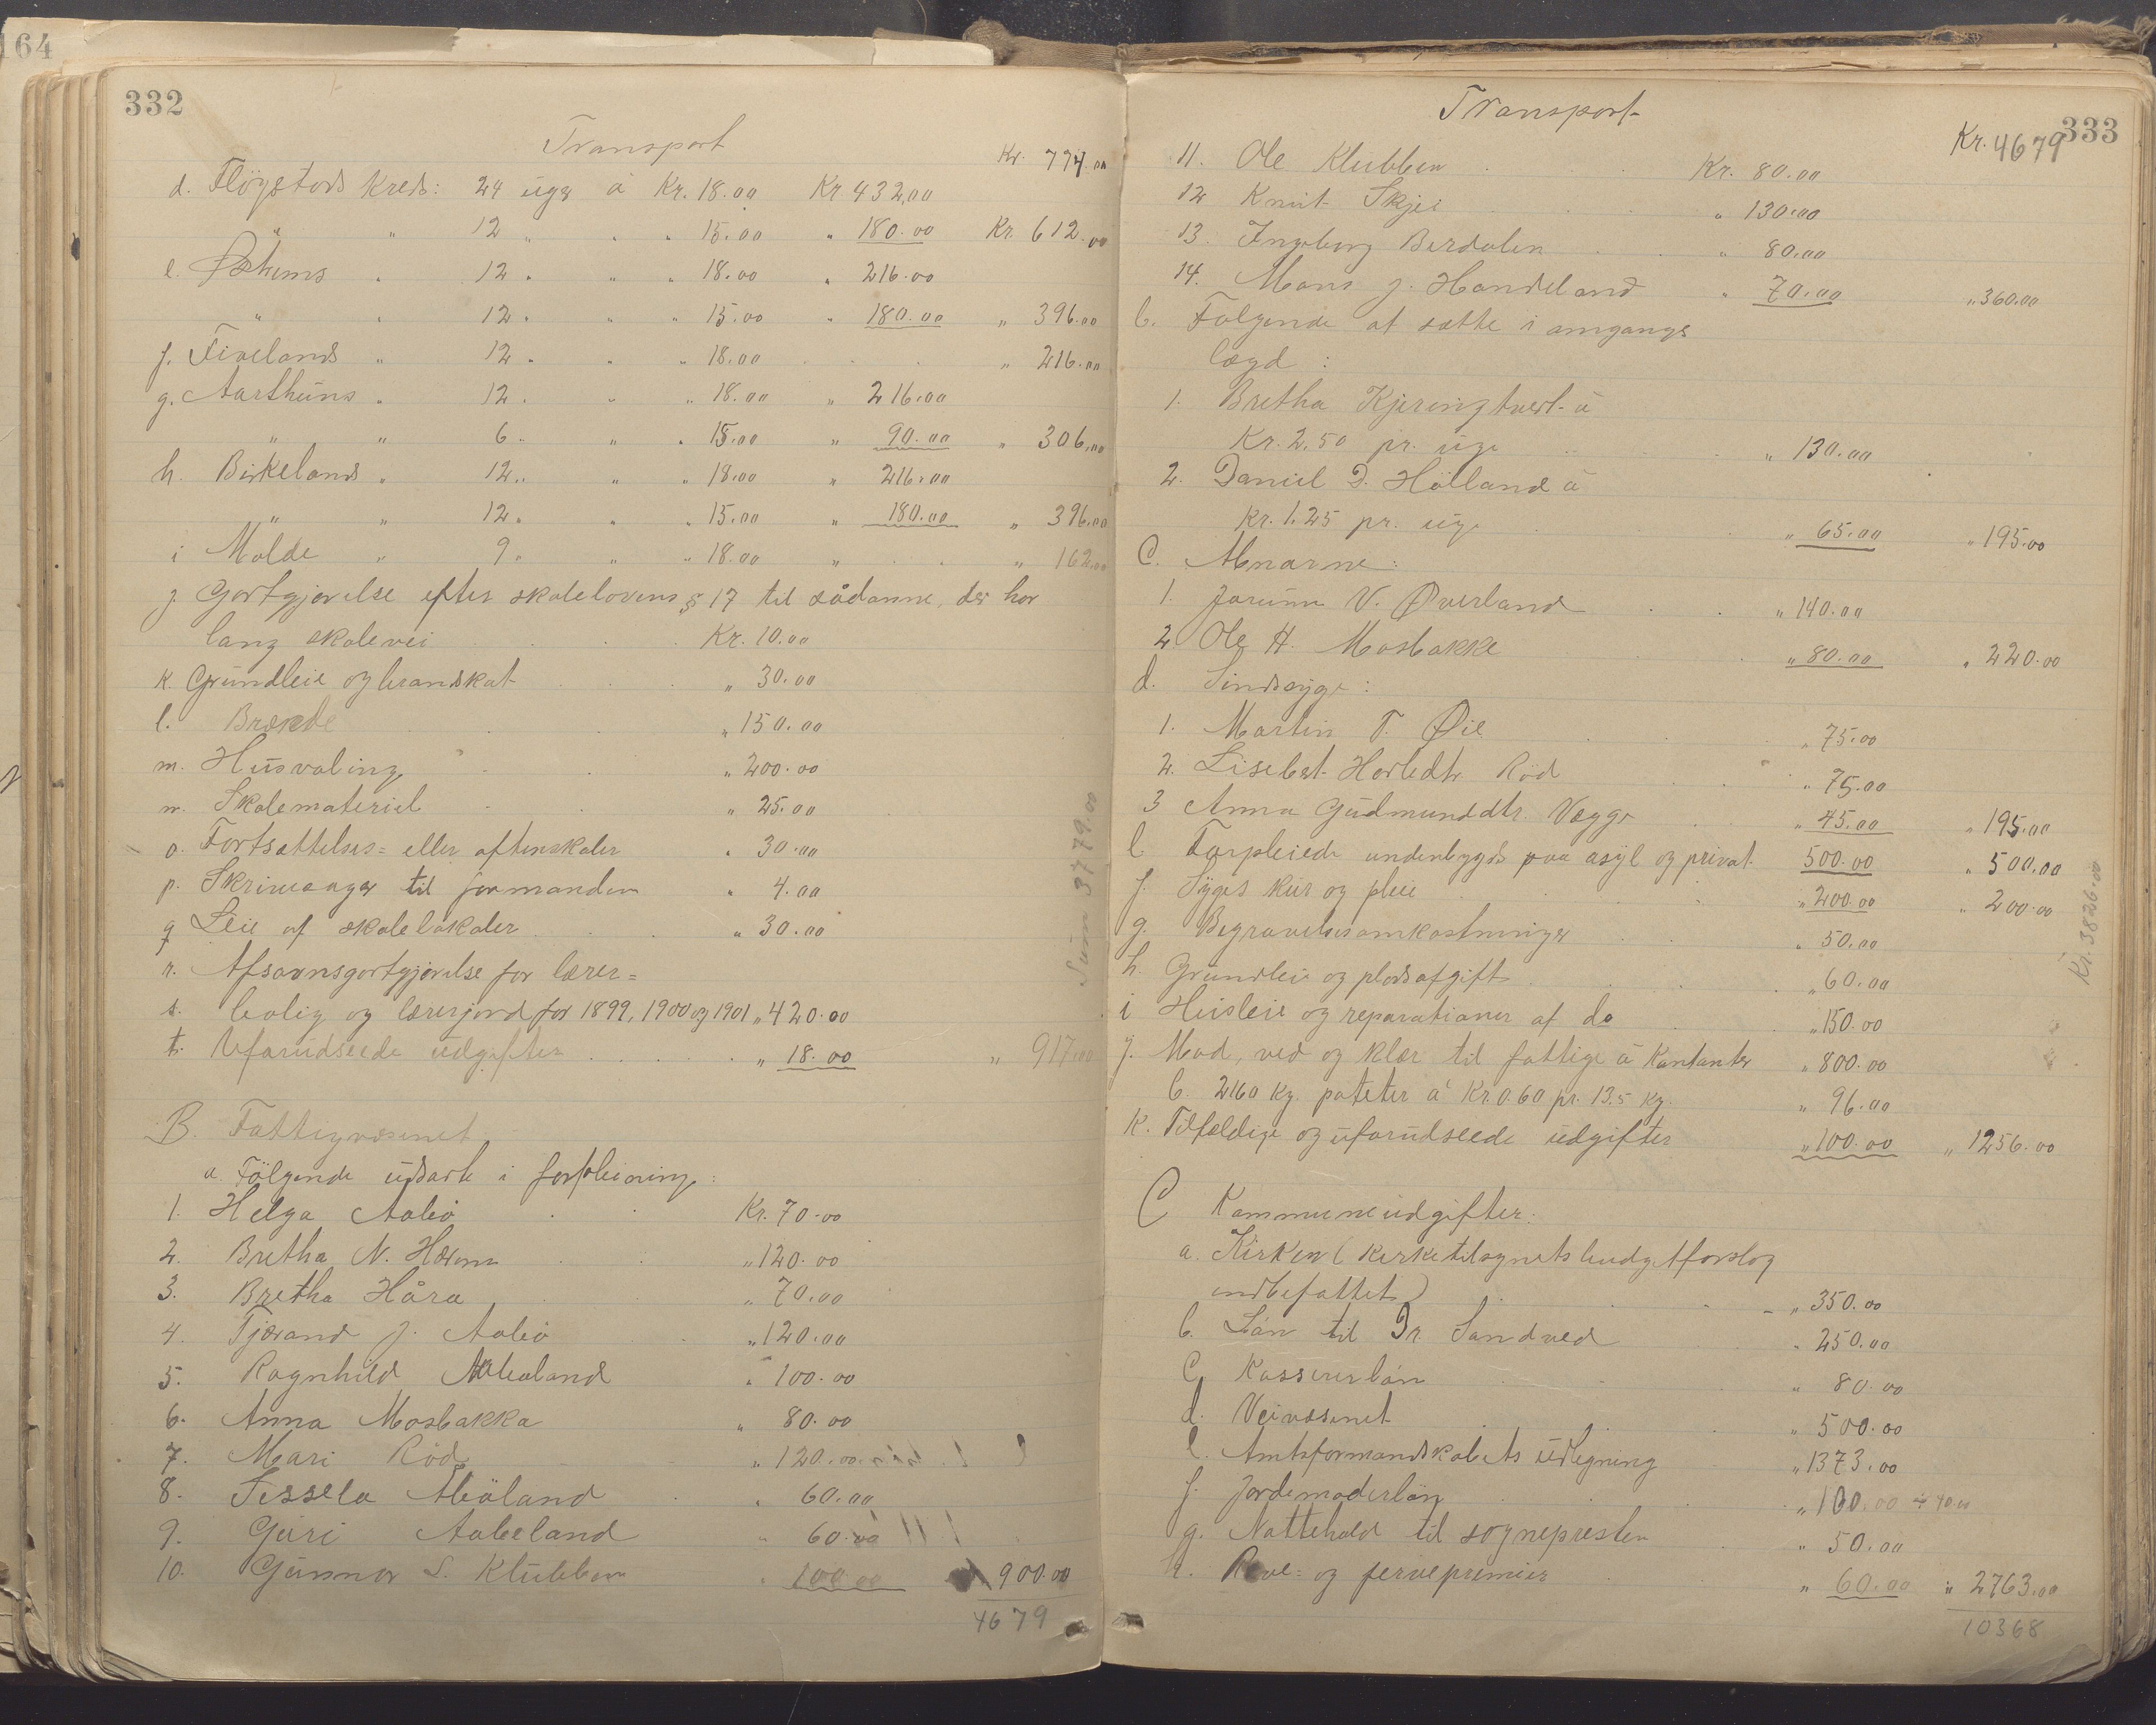 64
332
Transport
Kr. 774.00
d. Fløgstods Kreds: 24 uger á Kr. 18.00 Kr 432,00
" " 12 " " " 15.00 " 180.00 Kr. 612.00
e. 12 " " " 18.00 " 216.00
" " 12 " " " 15.00 " 180.00 " 396.00
f. Fivelands " 12 " " " 18.00 . . " 216.00
g. Aarthuns " 12 " " " 18.00 " 216.00
" " 6 " " " 15.00 " 90.00 " 306.00
h. Birkelands " 12 " " " 18.00 " 216.00
" " 12 " " " 15.00 " 180.00 " 396.00
i Molde " 9 " " " 18.00 " . . " 162.00
j. Godtgjørelse efter skolelovens § 17 til sådanne, der har
lang skolevei Kr. 10.00
k. Grundleie og brandskat " 30.00
l. Brænde " 150.00
m. Husvaling " 200.00
n. Skolemateriel " 25.00
o. Fortsættelses= eller aftenskoler " 30.00
p. til formanden " 4.00
q Leie af skolelokaler " 30.00
r. Afsavnsgodtgjørelse for lærer=
s. bolig og lærerjord for 1899, 1900 og 1901 " 420.00
t. Uforudseede udgifter " 18.00 " 917.00
Sum 3779.00
B. Fattigvæsenet
a. Følgende udsatte i forpleining:
1. Helga Aabø Kr. 70.00
2. Bretha N. " 120.00
3. Bretha Håra " 70.00
4. Tjærand J. Aabø " 120.00
5. Ragnhild " 100.00
6. Anna Mosbakka " 80.00
7. Mari Rød " 120.00
8. Sissela Abøland " 60.00
9. Guri Aabøland " 60.00
10. Gunnar S. Klubben " 100.00 " 900.00
4679
333
Transport
Kr. 4679
11. Ole Klubben Kr. 80.00
12 Knut Skjei " 130.00
13. Ingeborg Berdalen " 80.00
14. Mons J. Handeland " 70.00 " 360.00
b. Følgende at sætte i omgangs
lægd:
1. Bretha Kjeringtveit á
Kr. 2.50 pr. uge " 130.00
2. Daniel D. Hålland á
Kr. 1.25 pr. uge " 65.00 " 195.00
C. Almarne:
1. Jorunn V. Øverland " 140.00
2. Ole H. Mosbakke " 80.00 " 220.00
d. Sindsyge:
1. Martin T. Øie " 75.00
2. Lisebet Rød " 75.00
3 Anna Gudmundsdtr. Vægge " 45.00 " 195.00
e Forpleiede undenbygds paa asyl og privat 500.00 " 500.00
f. Syges kur og pleie " 200.00 " 200.00
g. Begravelsesomkostninger " 50.00
h. Grundleie og pladsafgift " 60.00
i Husleie og reparationer af do " 150.00
j. Mad, ved og klær til fattige á Kontanter " 800.00
b. 2160 kg. poteter á Kr. 0.60 pr. 13.5 kg. " 96.00
k. Tilfældige og uforudseede udgifter " 100.00 " 1256.00
Kr. 3826.00
C Kommuneudgifter:
a. Kirken (kirketilsynets budgetforslag
indbefattet) " 350.00
b. Løn til Dr Sandved " 250.00
C Kassererløn " 80.00
d. Veivæsenet " 500.00
e. Amtsformandskabets udligning " 1373.00
f. Jordemoderløn " 100.00
g. Nattehold til sognepresten " 50.00
h. Ræve= og jervepremier " 60.00 " 2763.00
10368